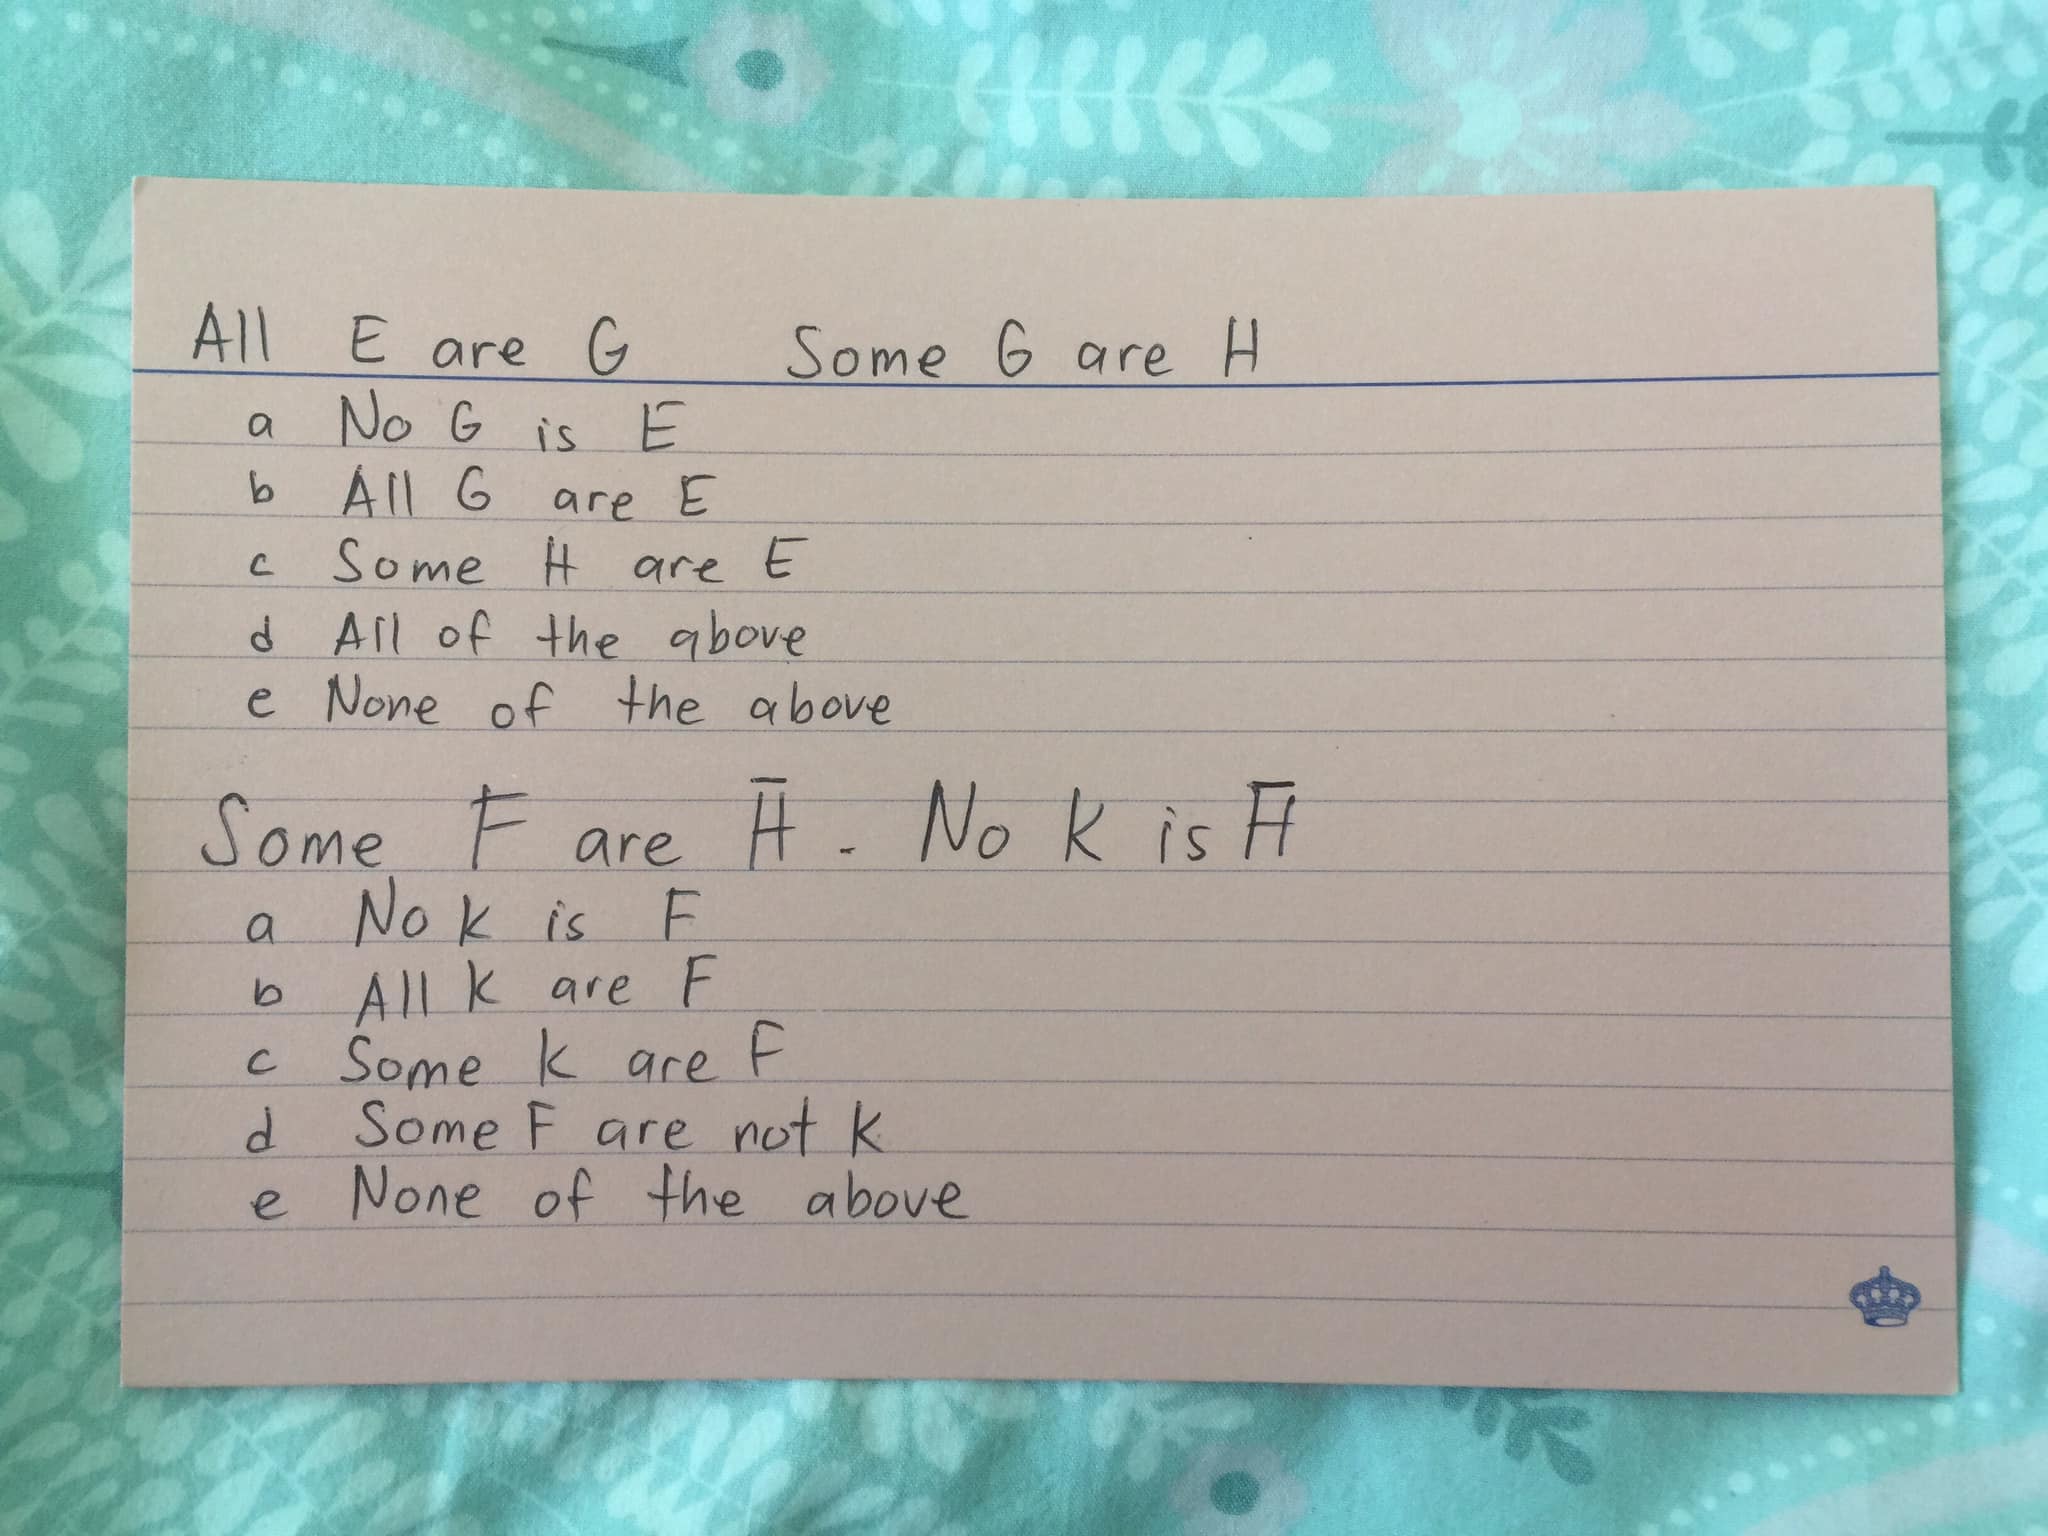 All E are G Some G are H
a No G is E
b All G are E
c Some H are E
d All of the above
e None of the above
Some F are H̅. No K is H̅
a No K is F
b All K are F
c Some K are F
d Some F are not K
e None of the above